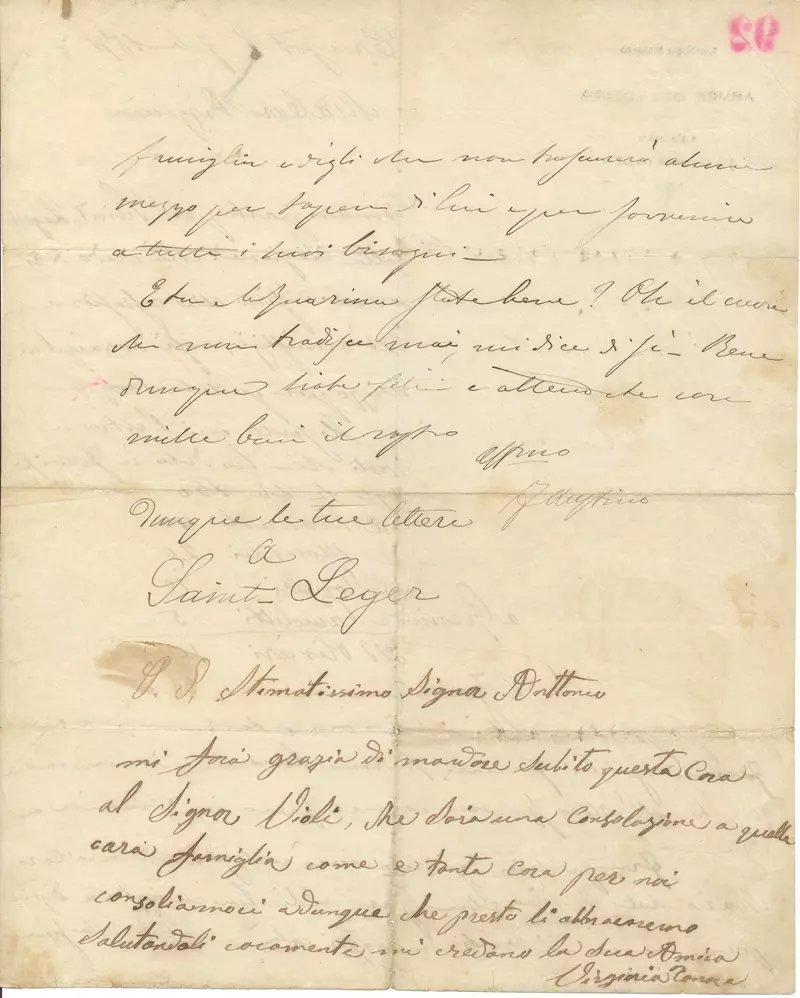 92
famiglia e digli che non trascurerà alcun
mezzo per sapere di lui e per sovvenire
a tutti i suoi bisogni –
E tu e la Guarina state bene? Oh il cuore
che non tradisce mai, mi dice di sì – Bene
dunque siate felici e attendete con
mille baci il vostro
affmo
Faustino
Dunque le tue lettere
a
Saint Leger
P. S. Stimatissimo Signor Anttonio
mi farà grazia di mandare subito questa Cora
al Signor Violi, che sarà una Consolazione a quella
cara famiglia come e tanta Cora per noi
consoliamoci adunque che presto li abbracceremo
Salutandoli caramente mi credano la sua Amica
Virginia